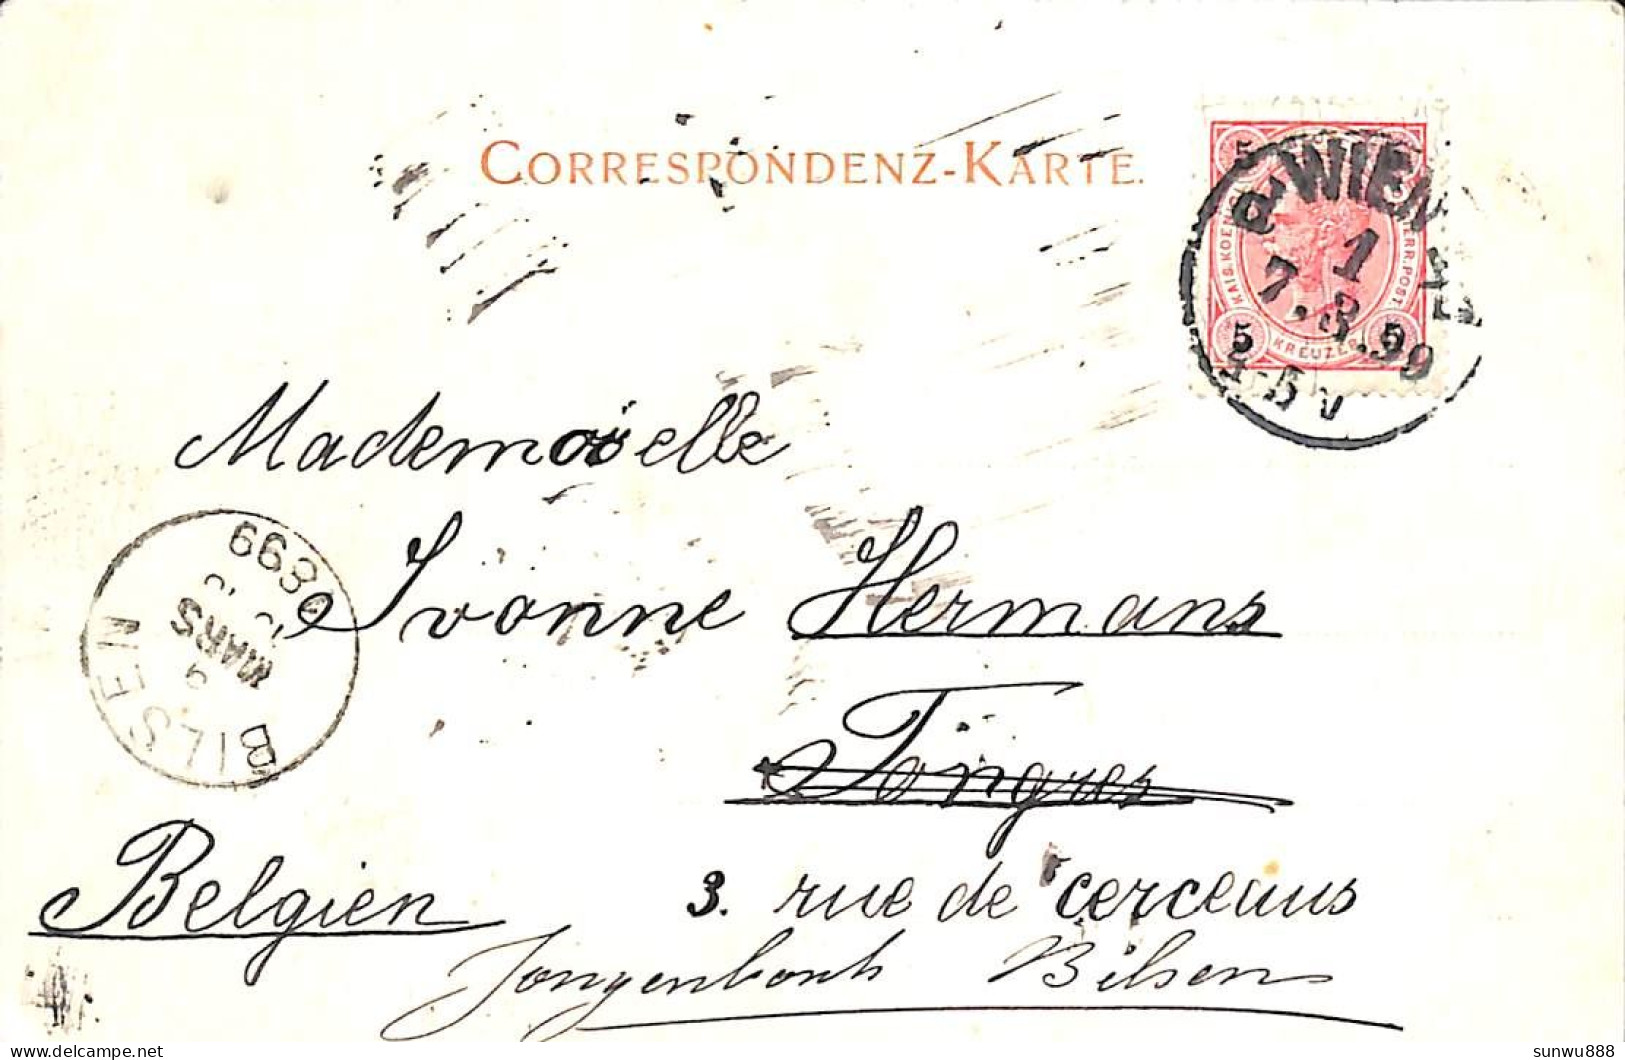 CORRESPONDENZ-KARTE.
WIEN
1
7.3.99
5 5 5
KAIS. KOENIGL. OESTERR. POST.
KREUZER
Mademoiselle
Yvonne Hermans
Tongres
Belgien
3. rue de cerceaus
Bilsen
BILSEN
9
MARS
1899
sunwu888